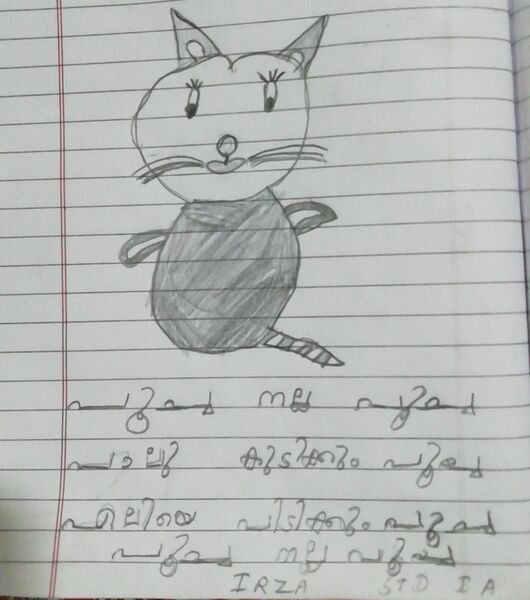 പൂച്ച നല്ല പൂച്ച
പാലു കുടിക്കും പൂച്ച
എലിയെ പിടിക്കും പൂച്ച
പൂച്ച നല്ല പൂച്ച
IRZA STD I A